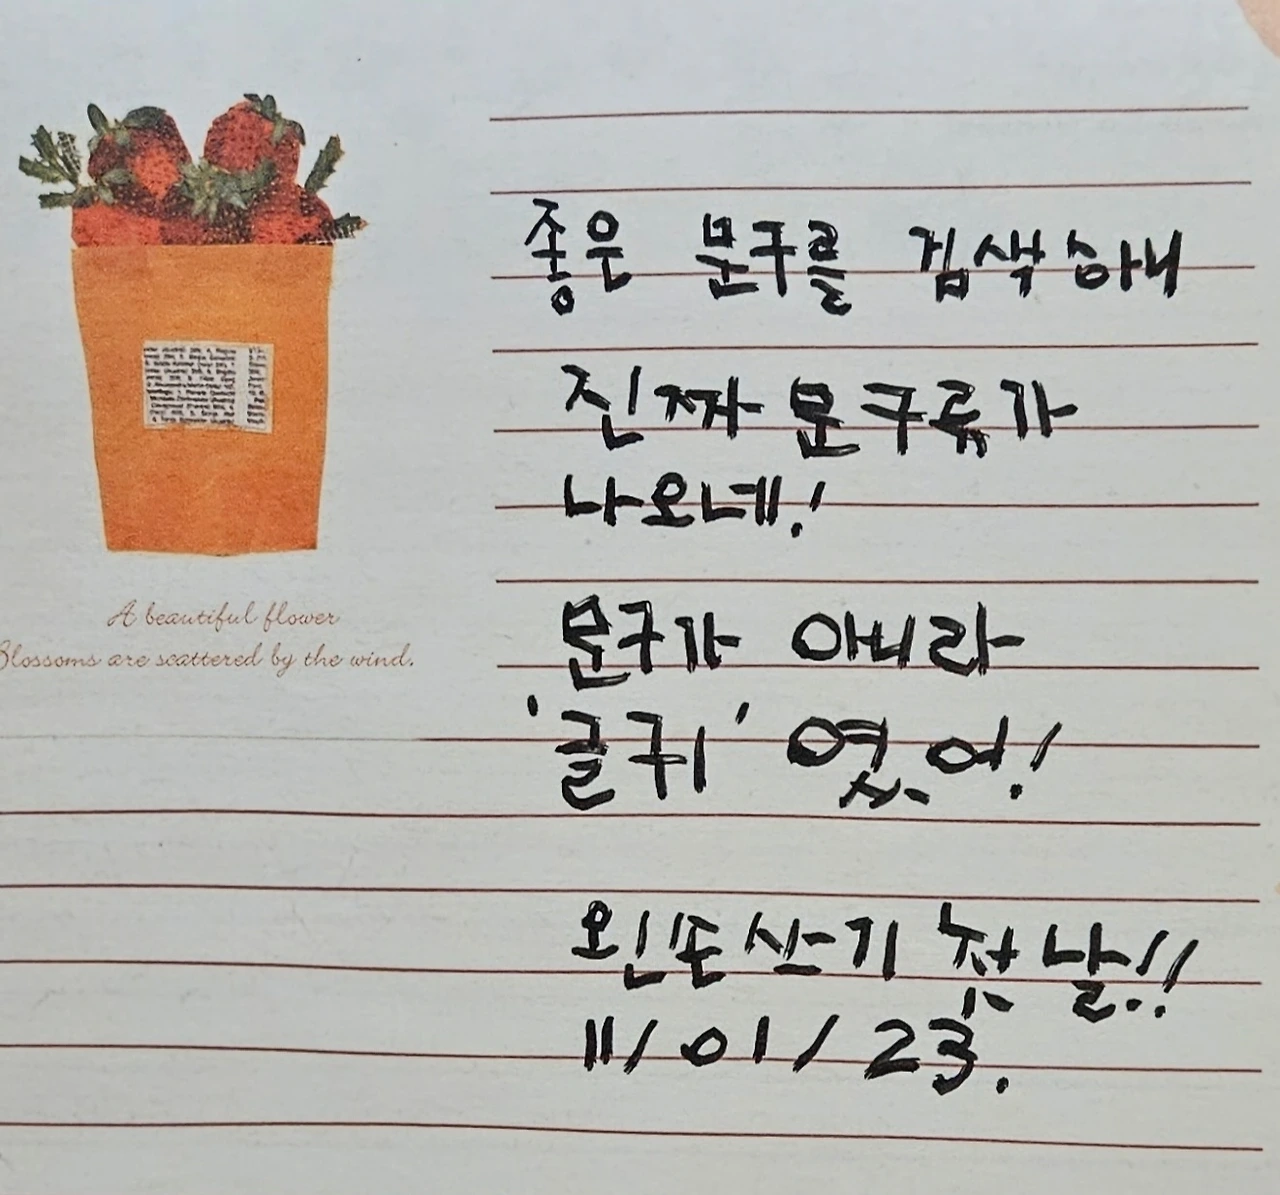 좋은 문구를 검색하니
진짜 문구류가
나오네!
문구가 아니라
'글귀' 였어!
왼손쓰기 첫날!!
11/01/23.
A beautiful flower
Blossoms are scattered by the wind.